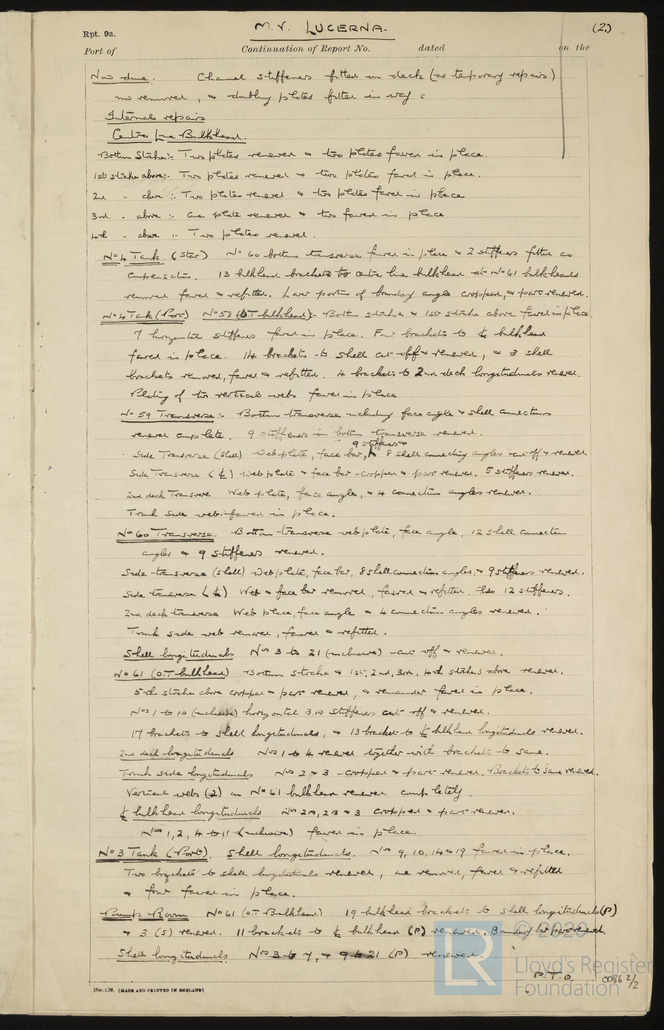 Rpt. 9a.
M.V. LUCERNA.
(2.)
Port of Continuation of Report No. dated on the
Now done. Channel stiffeners fitted on deck (as temporary repairs)
now removed, & doubling plates fitted in way
Internal repairs
Centre Line Bulkhead.
Bottom Strake:- Two plates renewed & two plates faired in place.
1st strake above:- Two plates renewed & two plates faired in place.
2nd " above :- Two plates renewed & two plates faired in place
3rd " above :- One plate renewed & two faired in place
4th " above :- Two plates renewed.
No 4 Tank. (Star) No 60 bottom transverse faired in place & 2 stiffeners fitted as
compensation. 13 bulkhead brackets to centre line bulkhead at No 61 bulkheads
removed faired & refitted. Lower portion of boundary angle cropped, & part renewed.
No 4 Tank (Port) No 58 (O.T. bulkhead):- Bottom strake & 1st strake above faired in place.
7 horizontal stiffeners faired in place. Four brackets to ℄ bulkhead
faired in place. 14 brackets to shell cut off & renewed, & 3 shell
brackets removed, faired & refitted. 4 brackets to 2nd deck longitudinals renewed.
Plating of two vertical webs faired in place
No 59 Transverse:- Bottom transverse including face angle & shell connections
renewed complete. 9 stiffeners on bottom transverse renewed.
9 stiffeners
Side Transverse (shell) Web plate, face bar, & 8 shell connecting angles cut off & renewed
Side Transverse (℄) Web plate & face bar cropped & part renewed. 5 stiffeners renewed.
2nd deck Transverse Web plate, face angle, & 4 connection angles renewed.
Trunk side web faired in place.
No 60 Transverse. Bottom transverse web plate, face angle, 12 shell connection
angles & 9 stiffeners renewed.
Side transverse (shell) Web plate, face bar, 8 shell connection angles, & 9 stiffeners renewed.
Side transverse (℄) Web & face bar removed, faired & refitted. Also 12 stiffeners.
2nd deck transverse Web plate, face angle & 4 connection angles renewed.
Trunk side web removed, faired & refitted.
Shell longitudinals Nos 3 to 21 (inclusive) cut off & renewed.
No 61 (O.T. bulkhead) Bottom strake & 1st, 2nd, 3rd, 4th strakes above renewed.
5th strake above cropped & part renewed, & remainder faired in place.
Nos 1 to 10 (inclusive) horizontal B.A stiffeners cut off & renewed.
17 brackets to shell longitudinals, & 13 brackets to ℄ bulkhead longitudinals renewed.
2nd deck longitudinals Nos 1 to 4 renewed together with brackets to same.
Trunk side longitudinals Nos 2 & 3 cropped & part renewed. Brackets to same renewed.
Vertical webs (2) on No 61 bulkhead renewed completely.
℄ bulkhead longitudinals Nos 2A, 2B & 3 cropped & part renewed.
Nos 1, 2, 4 to 11 (inclusive) faired in place.
No 3 Tank (Port). Shell longitudinals. Nos 9, 10, 14 & 19 faired in place.
Two brackets to shell longitudinals renewed, one removed, faired & refitted
& four faired in place.
Pump Room No 61 (O.T. Bulkhead) 19 bulkhead brackets to shell longitudinals (P)
& 3 (S) renewed. 11 brackets to ℄ bulkhead (P) renewed. Boundary bar part renewed.
Shell longitudinals Nos 3 to 7, & 9 to 21 (P) renewed.
P.T.O
© 2020
Lloyd's Register
Foundation
0086 2/2
(MADE AND PRINTED IN ENGLAND)